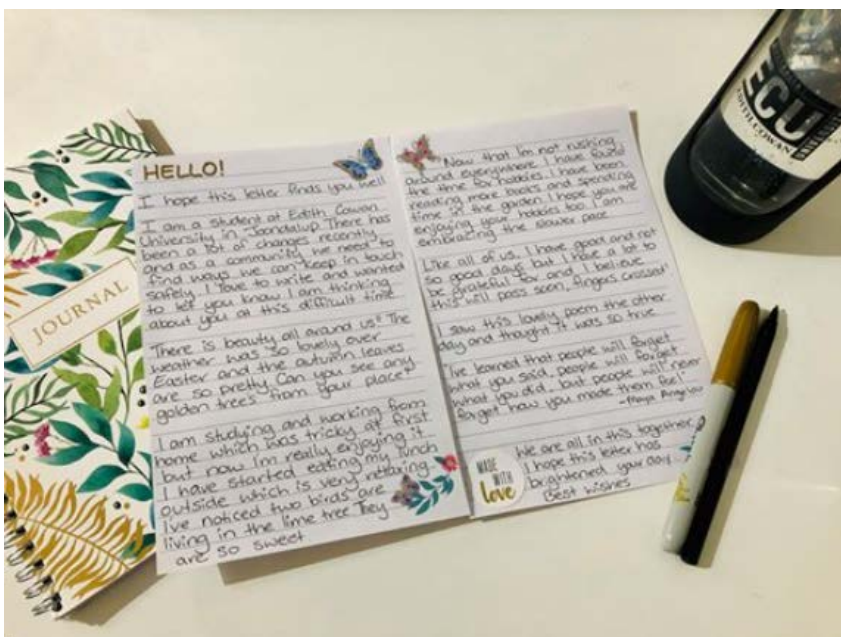 JOURNAL
HELLO!
I hope this letter finds you well
I am a student at Edith Cowan
University in Joondalup. There has
been a lot of changes recently
and as a community we need to
find ways we can keep in touch
safely. I love to write and wanted
to let you know I am thinking
about you at this difficult time
There is beauty all around us! The
weather was so lovely over
Easter and the autumn leaves
are so pretty. Can you see any
golden trees from your place?
I am studying and working from
home which was tricky at first
but now I'm really enjoying it
I have started eating my lunch
outside which is very relaxing.
I've noticed two birds are
living in the lime tree They
are so sweet
Now that I'm not rushing
around everywhere I have found
the time for hobbies. I have been
reading more books and spending
time in the garden. I hope you are
enjoying your hobbies too. I am
embracing the slower pace
Like all of us, I have good and not
so good days but I have a lot to
be grateful for and, I believe
this will pass soon, fingers crossed!
I saw this lovely poem the other
day and thought it was so true
"I've learned that people will forget
what you said, people will forget
what you did, but people will never
forget how you made them feel"
-Maya Angelou
We are all in this together
I hope this letter has
brightened your day
Best wishes
MADE
WITH
love
ECU
EDITH COWAN